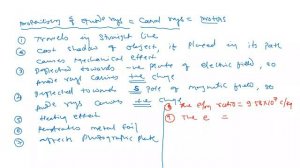 Properties of Anode rays = Canal rays =
① Travels in straight line
② Cast shadow of object, if placed in its path
Causes Mechanical effect
③ Deflected towards -ve plate of electric field, so
Anode rays carries +ve charge
④ Deflected towards S pole of magnetic field, so
Anode rays carries +ve charge
⑤ Heating effect
⑥ metal foil
⑦ affects photographic plate
⑧ The e/m ratio =
⑨ The e =